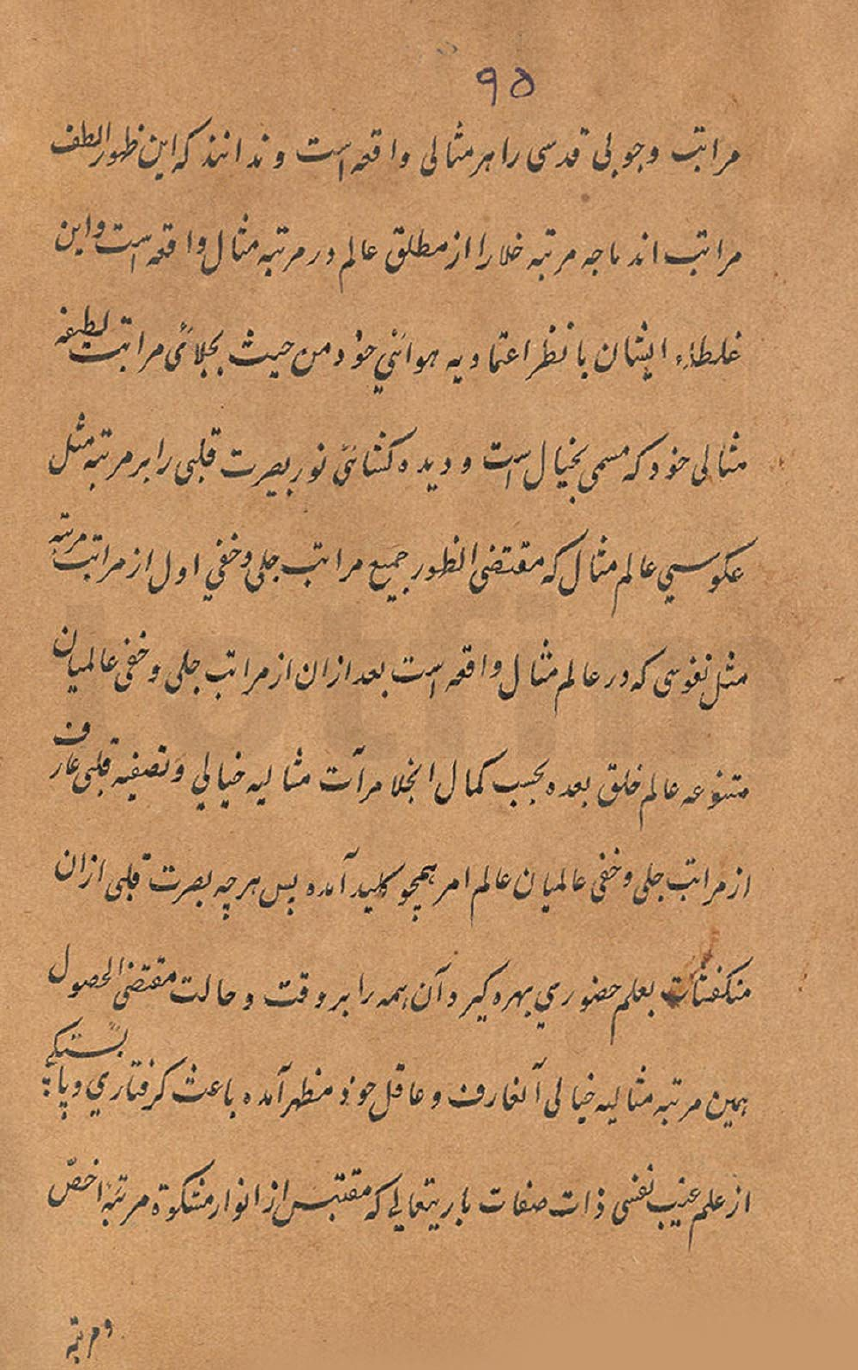 ۹۵
مراتب وجوبی قدسی را هر مثالی واقعه است و ندانند که این ظهور الطف
مراتب اند ماجه مرتبه خلا را از مطلق عالم در مرتبه مثال واقعه است و این
غلطاء ایشان با نظر اعتماد به هوائی خود من حیث بجلائی مراتب لطیفه
مثالی خود که مسمی بخیال است و دیده کشائی نور بصیرت قلبی را بر مرتبه مثل
عکوسی عالم مثال که مقتضی الظهور جمیع مراتب جلی و خفی اول از مراتب مرتبه
مثل نفوسی که در عالم مثال واقعه است بعد ازان از مراتب جلی و خفی عالمیان
متنوعه عالم خلق بعده بحسب کمال انجلا مرآت مثالیه خیالی و تصفیه قلبی عارف
از مراتب جلی و خفی عالمیان عالم امر همچو کلید آمده پس هر چه بصرت قلبی ازان
منکشفات بعلم حضوري بهره کیرد آن همه را بر وقت و حالت مقتضی الحصول
همین مرتبه مثالیه خیالی آنعارف و عاقل خود منظهر آمده باعث کرفتاري و پا بستکی
از علم غیب نفسی ذات صفات باریتعالی که مقتبس از انوار مشکوة مرتبه اخصّ
و مرتبه